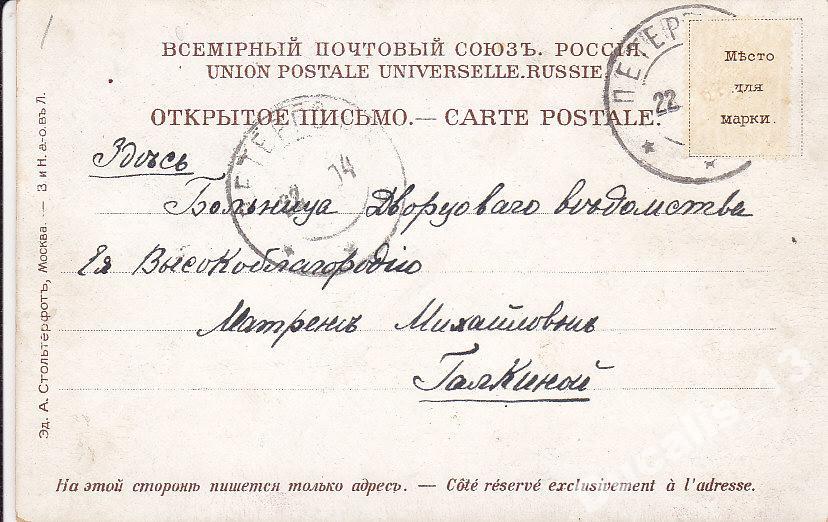 ВСЕМІРНЫЙ ПОЧТОВЫЙ СОЮЗЪ. РОССІЯ.
UNION POSTALE UNIVERSELLE.RUSSIE
ОТКРЫТОЕ ПИСЬМО.— CARTE POSTALE.
Мѣсто
для
марки.
ПЕТЕР
22
22 04
Здѣсь
Больница Дворцоваго вѣдомства
Ея Высокоблагородію
Матренѣ Михайловнѣ
Галкиной
На этой сторонѣ пишется только адресъ. — Côté réservé exclusivement à l'adresse.
Эд. А. Стольтерфотъ, Москва. — В и Н. а-овъ Л.